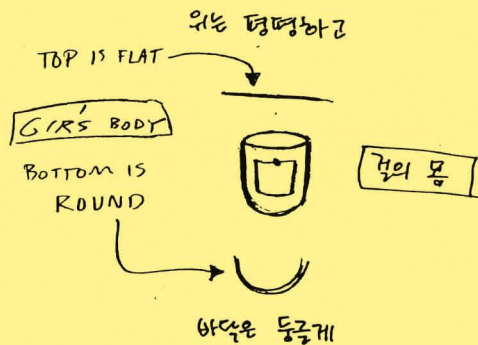 위는 평평하고
TOP IS FLAT
GIR'S BODY
BOTTOM IS
ROUND
걸의 몸
바닥은 둥글게